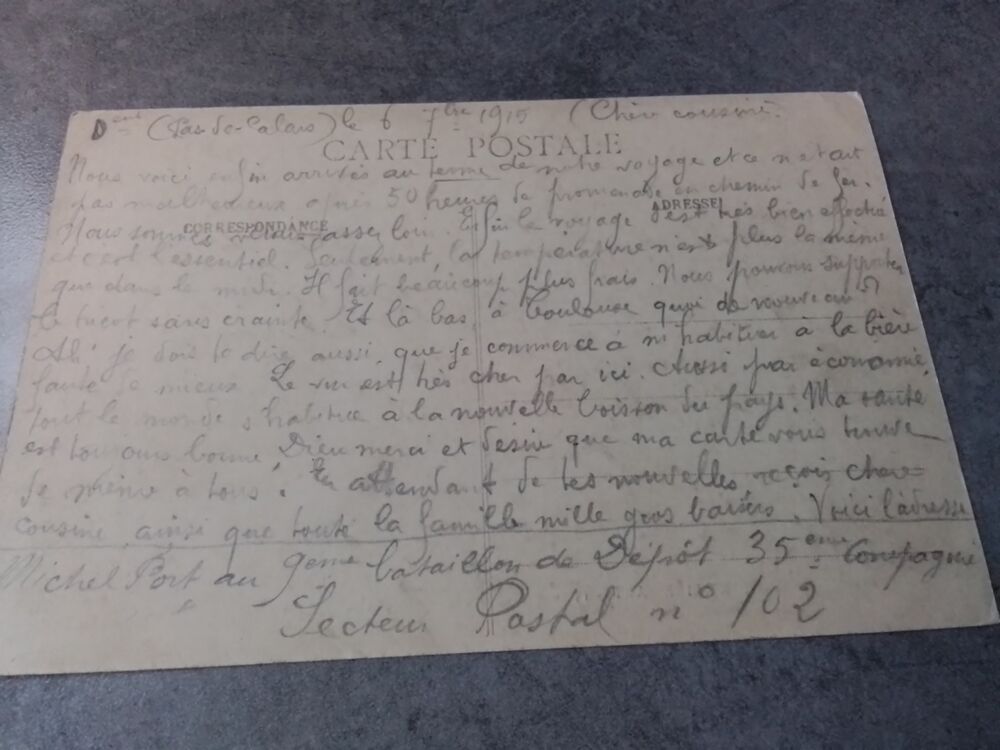 (Pas-de-Calais) le 6 7bre 1915 (Chère cousine.
CARTE POSTALE
Nous voici enfin arrivés au terme de notre voyage et ce n'etait
pas malheureux après 50 heures de promenade en chemin de fer.
ADRESSE
CORRESPONDANCE
Nous sommes assez loin. Enfin le voyage s'est très bien effectué
et c'est l'essentiel. Seulement, la temperature n'est plus la même
que dans le midi. Il fait beaucoup plus frais. Nous pouvons supporter
le tricot sans crainte. Et là bas, à Toulouse quoi de nouveau?
Ah! je dois te dire aussi, que je commence à m'habituer à la bière
faute de mieux. Le vin est très cher par ici. Aussi par économie,
tout le monde s'habitue à la nouvelle boisson du pays. Ma santé
est toujours bonne, Dieu merci et désire que ma carte vous trouve
de même à tous. En attendant de tes nouvelles reçois chère
cousine, ainsi que toute la famille mille gros baisers. Voici l'adresse
Michel Port au 9eme bataillon de Dépôt 35eme Compagnie
Secteur Postal n° 102